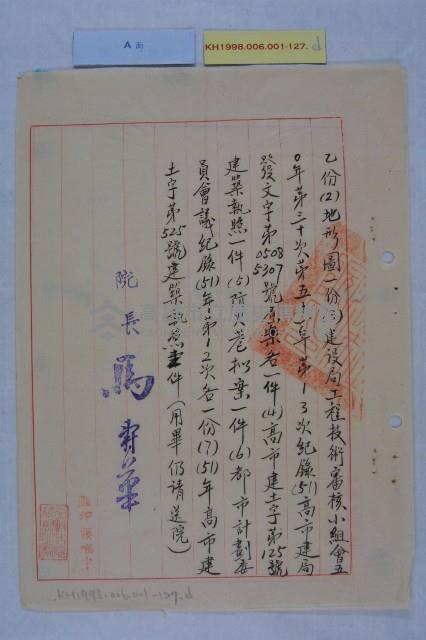 A面
KH1998.006.001-127.d
乙份(2)地形圖一份(3)建設局工程技術審核小組會五
0年第三十次第五十一年第1 3次紀錄(51)高市建局
發文字第0508 5307號原案各一件(4)高市建土字第125號
建築執照一件(5)防火巷拟案一件(6)都市計劃委
員會議紀錄(51)年第1 2次各一份(7)(51)年高市建
土字第525號建築執照壹件(用畢仍請送院)
院長馬壽華
KH1998.006.001-127.d